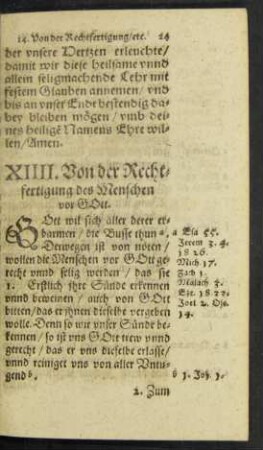 14. Von der Rechtfertigung/etc. 24
der vnsere Hertzen erleuchte/
damit wir diese heilsame vnnd
allein seligmachende Lehr mit
festem Glauben annemen/ vnd
bis an vnser Ende bestendig da-
bey bleiben mögen/ vmb dei-
nes heilige Namens Ehre wil-
len/ Amen.
XIIII. Von der Recht-
fertigung des Menschen
vor GOtt.
GOtt wil sich aller derer er-
barmen/ die Busse thun a. a Esa 55.
Derwegen ist von nöten/ Jerem 3. 4.
wollen die Menschen vor GOtt ge- 18 26.
recht vnnd selig werden/ das sie Mich 17.
1. Erstlich ihre Sünde erkennen Zach 1.
vnnd beweinen/ auch von GOtt Malach 3.
bitten/ das er ihnen dieselbe vergeben Eze. 18 22.
wolle. Denn so wir vnser Sünde be- Joel 2. Ose.
kennen/ so ist vns GOtt trew vnnd 14.
gerecht/ das er vns dieselbe erlasse/
vnnd reiniget vns von aller Vntu-
gend b. b 1. Joh 1.
2. Zum